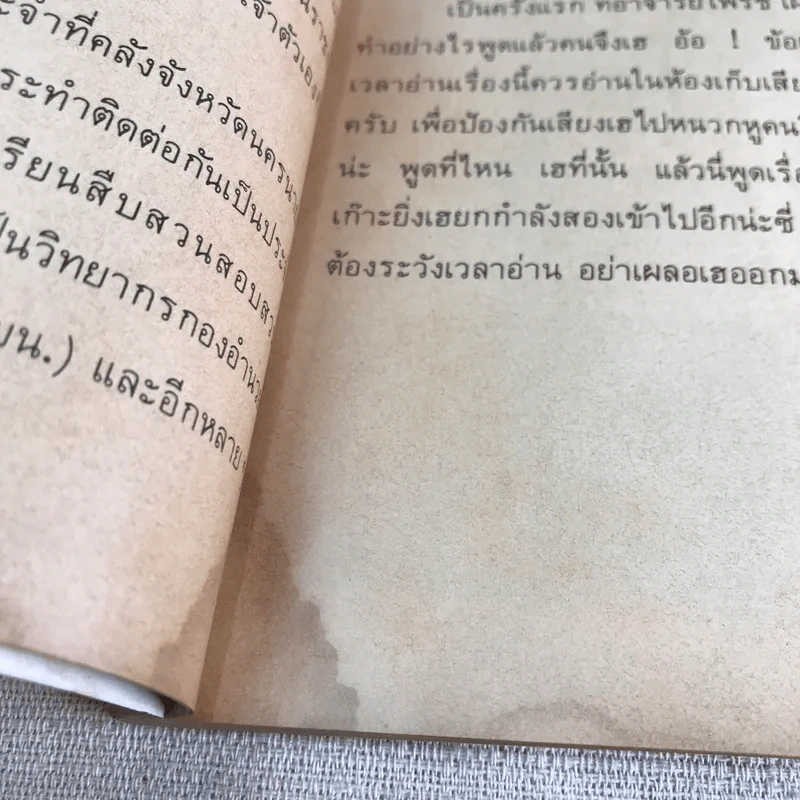 นราช
เจ้าตัวเอง
ะจำที่คลังจังหวัดนครนาย
ระทำติดต่อกันเป็นประ
รียนสืบสวนสอบสว
ป็นวิทยากรกองอำนว
ยน.) และอีกหลาย
เป็นครั้งแรก ที่อาจารย์ไพรัช
ทำอย่างไรพูดแล้วคนจึงเฮ อ้อ ! ข้อ
เวลาอ่านเรื่องนี้ควรอ่านในห้องเก็บเสีย
ครับ เพื่อป้องกันเสียงเฮไปหนวกหูคน
น่ะ พูดที่ไหน เฮที่นั้น แล้วนี่พูดเรื่อ
เก๊าะยิ่งเฮยกกำลังสองเข้าไปอีกน่ะซี่
ต้องระวังเวลาอ่าน อย่าเผลอเฮออกม